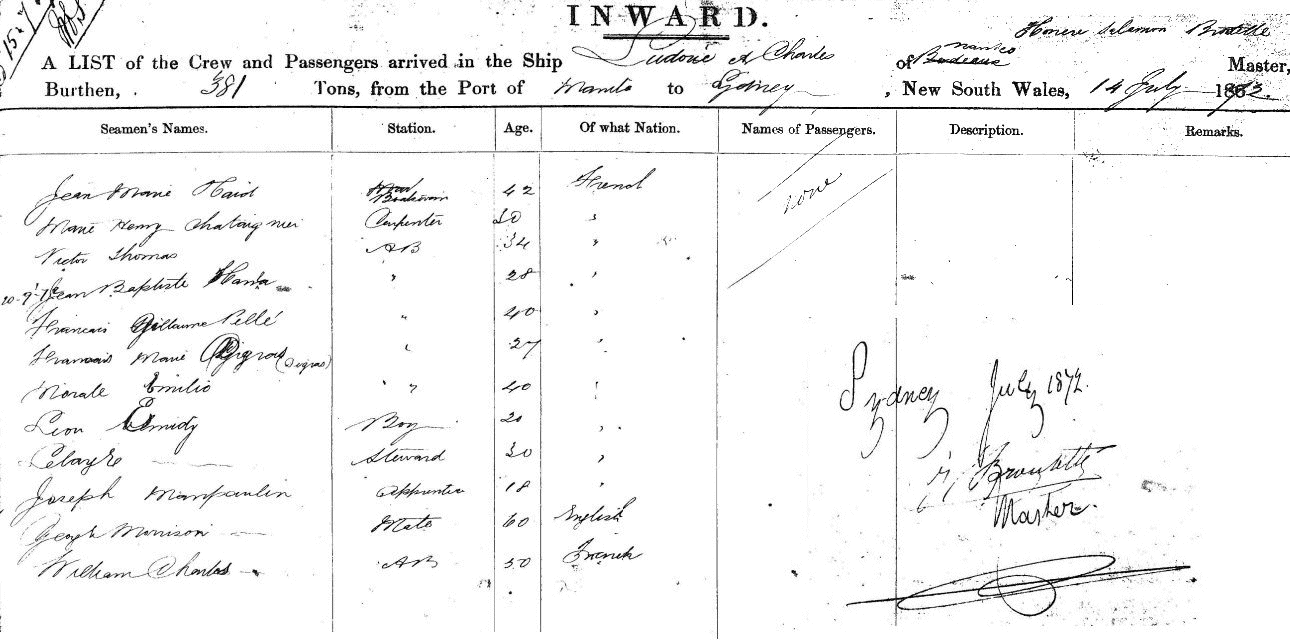 15-7
INWARD.
Honere Salamon
A LIST of the Crew and Passengers arrived in the Ship Ludovic & Charles of Nantes Bordeaux Master,
Burthen, . 381 Tons, from the Port of Manila to Sydney , New South Wales, 14 July 1872.
Seamen's Names. Station. Age. Of what Nation. Names of Passengers. Description. Remarks.
Jean Marie Boatswain 42 French none
Marie Henry Carpenter 30 "
Victor Thomas AB 34 "
Jean Baptiste " 28 "
Francais Gillaume Pellé " 40 "
Francais Marie " 27 "
Morale Emilio " 40 "
Leon Emidy Boy 20 "
Steward 30 "
Joseph Apprentice 18 "
Morrison Mate 60 English
William Charles AB 50 French
Sydney July 1872.
Master.